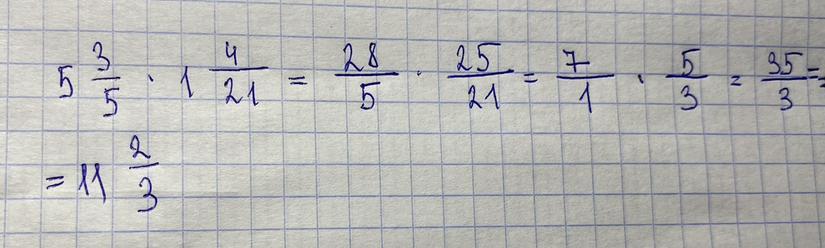 5 3/5 · 1 4/21 = 28/5 · 25/21 = 7/1 · 5/3 = 35/3 =
= 11 2/3